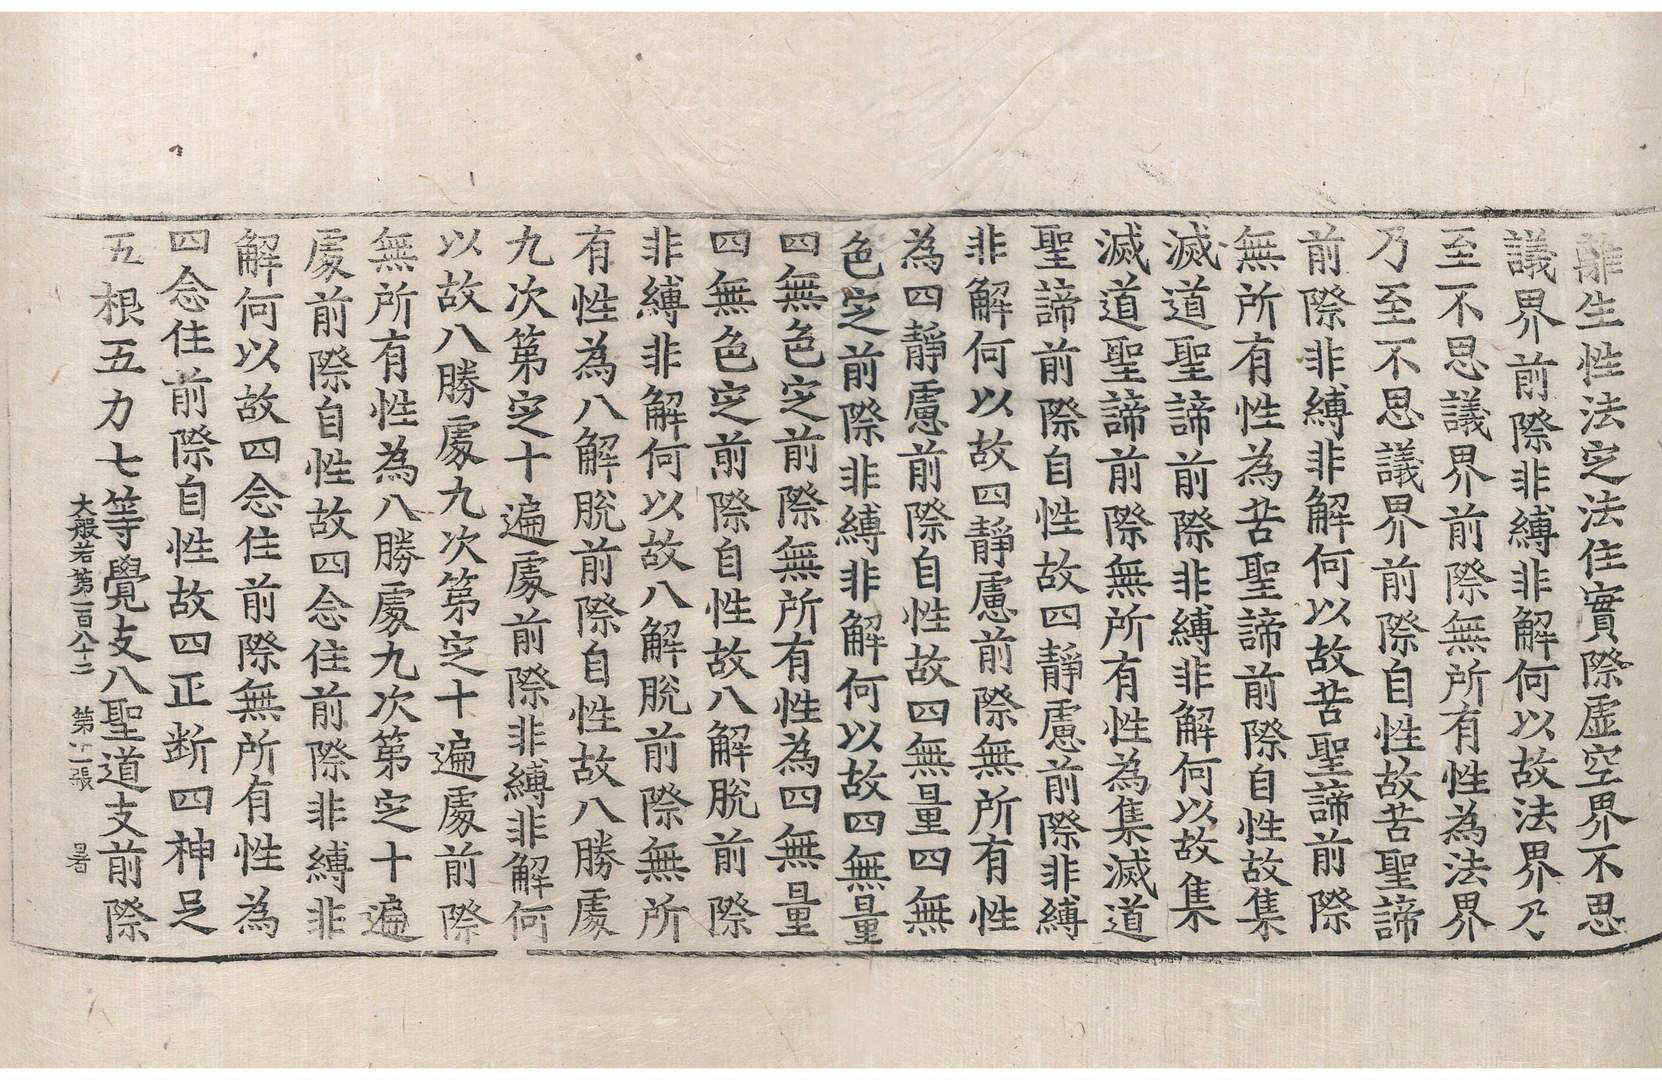 離生性法定法住實際虛空界不思
議界前際非縛非解何以故法界乃
至不思議界前際無所有性為法界
乃至不思議界前際自性故苦聖諦
前際非縛非解何以故苦聖諦前際
無所有性為苦聖諦前際自性故集
滅道聖諦前際非縛非解何以故集
滅道聖諦前際無所有性為集滅道
聖諦前際自性故四靜慮前際非縛
非解何以故四靜慮前際無所有性
為四靜慮前際自性故四無量四無
色定前際非縛非解何以故四無量
四無色定前際無所有性為四無量
四無色定前際自性故八解脫前際
非縛非解何以故八解脫前際無所
有性為八解脫前際自性故八勝處
九次第定十遍處前際非縛非解何
以故八勝處九次第定十遍處前際
無所有性為八勝處九次第定十遍
處前際自性故四念住前際非縛非
解何以故四念住前際無所有性為
四念住前際自性故四正斷四神足
五根五力七等覺支八聖道支前際
大般若第一百八十二 第 張